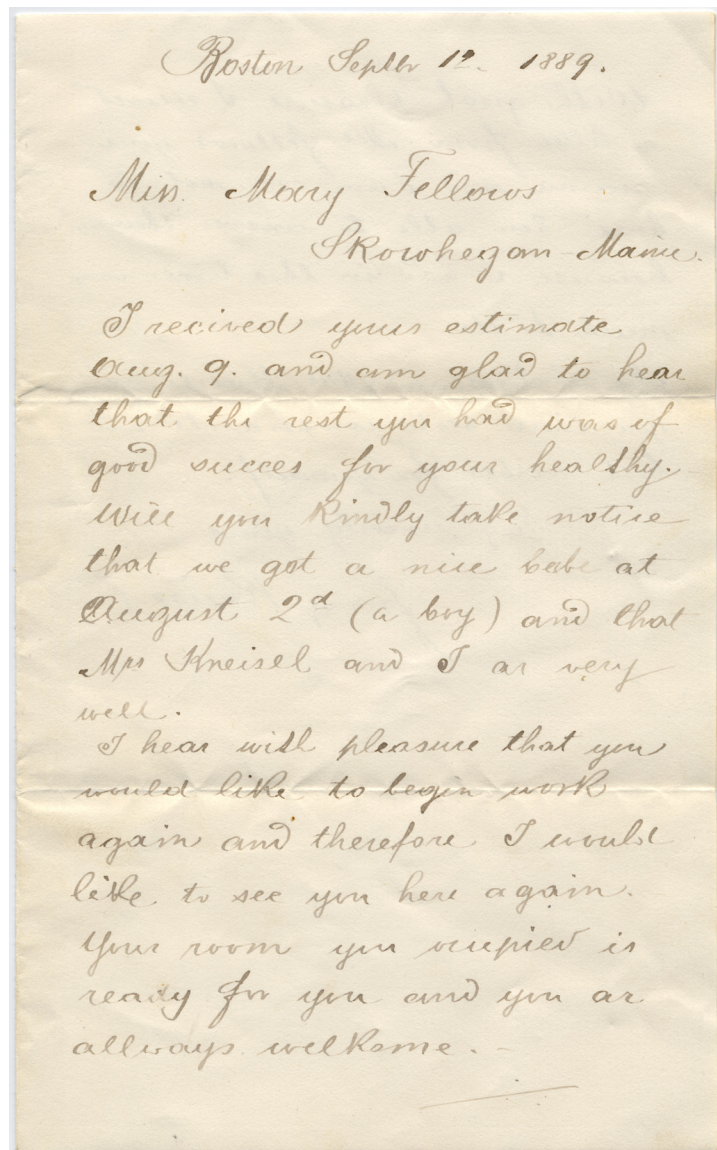 Boston Septbr 12. 1889.
Miss. Mary Fellows
Skowhegan Maine.
I recived yours estimate
Aug. 9. and am glad to hear
that the rest you had was of
good succes for your healthy.
Will you kindly take notice
that we got a nice babe at
August 2d (a boy) and that
Mrs Kneisel and I ar very
well.
I hear with pleasure that you
would like to begin work
again and therefore I would
like to see you here again.
Your room you ocupied is
ready for you and you ar
allways welkome. -